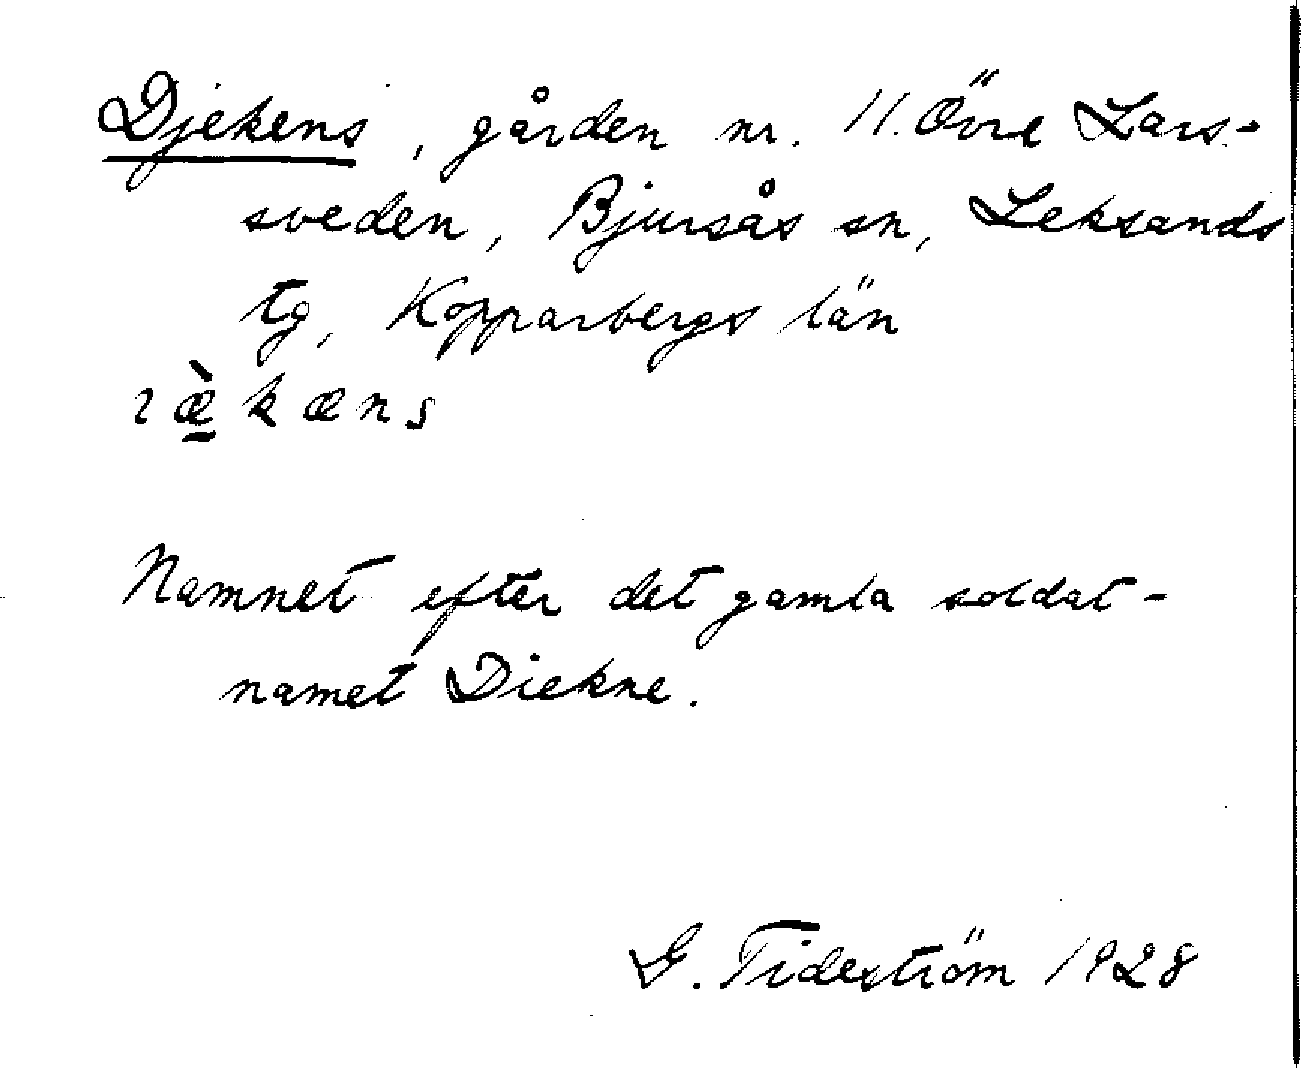 Djekens, gården nr. 11. Övre Lars-
sveden, Bjursås sn, Leksands
tg, Kopparbergs län
ɿæ̱̀kæns
Namnet efter det gamla soldat-
namet Diekne.
G. Tideström 1928